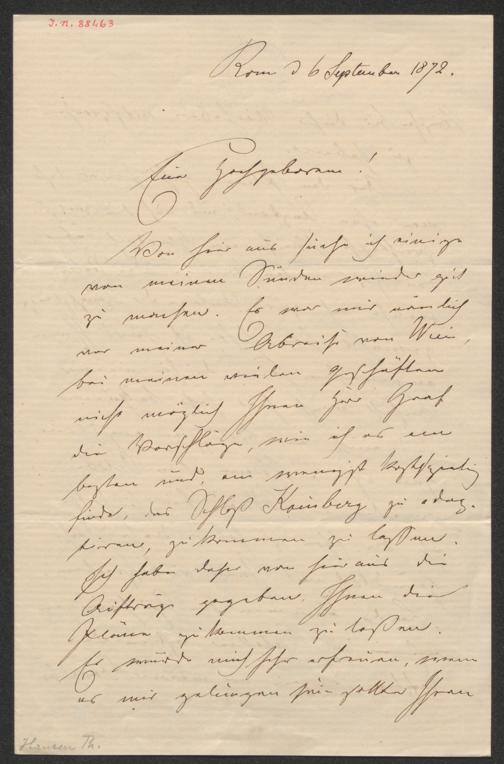 J.N. 88463
Rom d 6 September 1872.
Euer Hochgeboren!
Von hier aus suche ich einige
von meinen Sünden wieder gut
zu machen. Es war mir nämlich
vor meiner Abreise von Wien,
bei meinen vielen Geschäften
nicht möglich Ihnen Herr Graf
die Vorschläge, wie ich es am
besten und am wenigst kostspielig
finde, das Schloß Hainberg zu adap-
tiren, zukommen zu lassen.
Ich habe daher von hier aus die
Aufträge gegeben, Ihnen die
Pläne zukommen zu laßen.
Es würde mich sehr erfreuen, wenn
es mir gelungen sein sollte Ihren
Hansen Th.